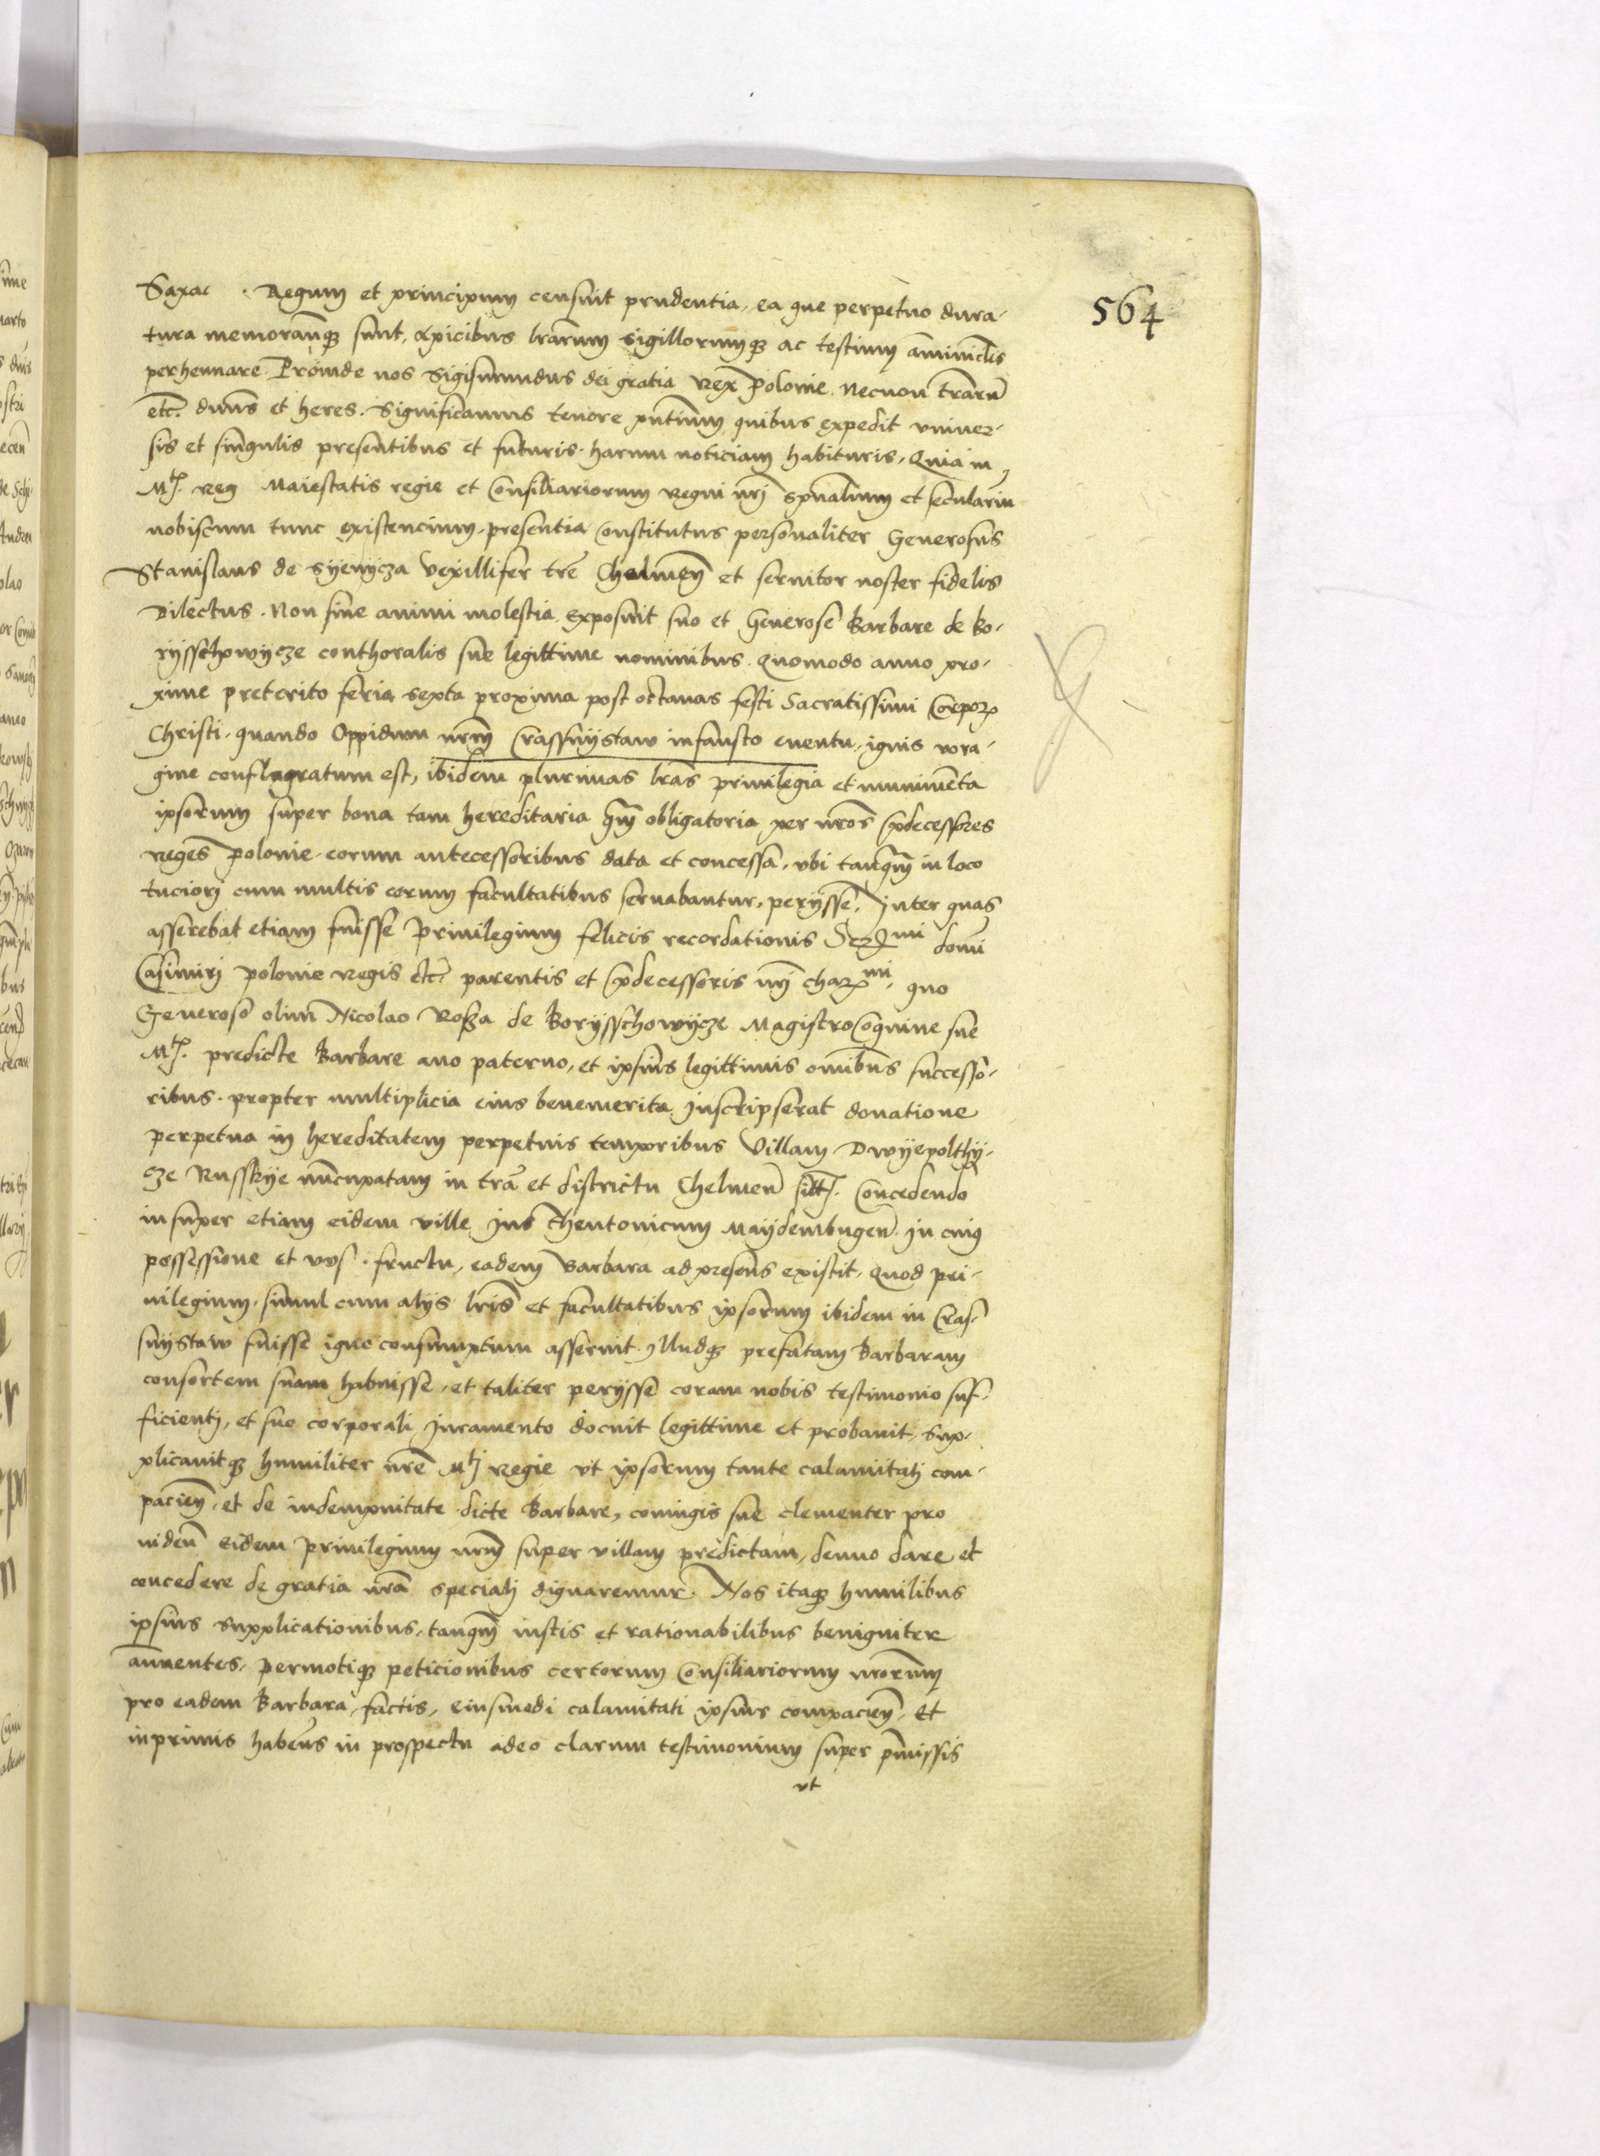 564
Saxac. Regum et principum censuit prudentia, ea que perpetuo dura-
tura memoranq3 sunt, Apicibus lrarum sigillorumq3 ac testium amiclis
perhennare. Proinde nos Sigismundus dei gratia Rex Polonie. Necnon trarū
etc. dūns et heres. Significamus tenore pntium quibus expedit vniuer-
sis et singulis presentibus et futuris. harum noticiam habituris. Quia in
Mtj. Maiestatis regie et Consiliariorum regni nrj spualium et seculariū
nobiscum tunc existencium presentia Constitutus personaliter Generosus
Stanislaus de Syenycza Vexillifer tre Chelmeñ et seruitor noster fidelis
Dilectus. Non sine animi molestia exposuit suo et Generose Barbare de Bo-
rysschowycze conthoralis sue legittime nominibus. Quomodo anno pro-
xime preterito feria sexta proxima post octauas festi Sacratissimi Corpor
Christi. quando Oppidum nrm Crassnystaw infausto euentu, ignis vora-
gine conflagratum est, ibidem plurimas lras priuilegia et munimenta
ipsorum super bona tam hereditaria q̃m obligatoria per nros p̃decessores
reges Polonie eorum antecessoribus data et concessa, vbi tanq̃m in loco
tuciorj cum multis eorum facultatibus seruabantur, perysse. Inter quas
asserebat etiam fuisse Priuilegium felicis recordationis Ser mi domi
Casimirj Polonie regis etc. parentis et p̃decessoris nrj char mi. quo
Generoso olim Nicolao Rosza de Borysschowycze Magistro Coquine sue
Mtj. predicte Barbare auo paterno, et ipsius legittimis omibus successo-
ribus propter multiplicia eius benemerita Inscripserat donatione
perpetua in hereditatem perpetuis temporibus Villam Dwyepolthy-
cze Russkye nuncupatam in tra et districtu Chelmeñ sitt. Concedendo
insuper etiam eidem ville Jus theutonicum Maydemburgeñ. In cuius
possessione et vsu. fructu, eadem Barbara ad presens existit. Quod pri-
uilegium simul cum alijs lris et facultatibus ipsorum ibidem in Cras-
snystaw fuisse igne consumptum asseruit. Illudq3 prefatam Barbaram
consortem suam habuisse, et taliter perysse coram nobis testimonio suf-
ficientj, et suo corporali Juramento docuit legittime et probauit. Sup-
plicauitq3 humiliter nre Mtj regie vt ipsorum tante calamitatj com-
pacieñ. et de indempnitate dicte Barbare, coniugis sue clementer pro
uideñ eidem Priuilegium nrm super villam predictam, denuo dare et
concedere de gratia nra specialj dignaremur. Nos itaq3 humilibus
ipsius supplicationibus, tanq̃m iustis et rationabilibus benigniter
annuentes. permotiq3 peticionibus certorum Consiliariorum nrorum
pro eadem Barbara factis, eiusmodi calamitati ipsius compacieñ. Et
inprimis habeñs in prospectu adeo clarum testimonium super p̃missis
vt